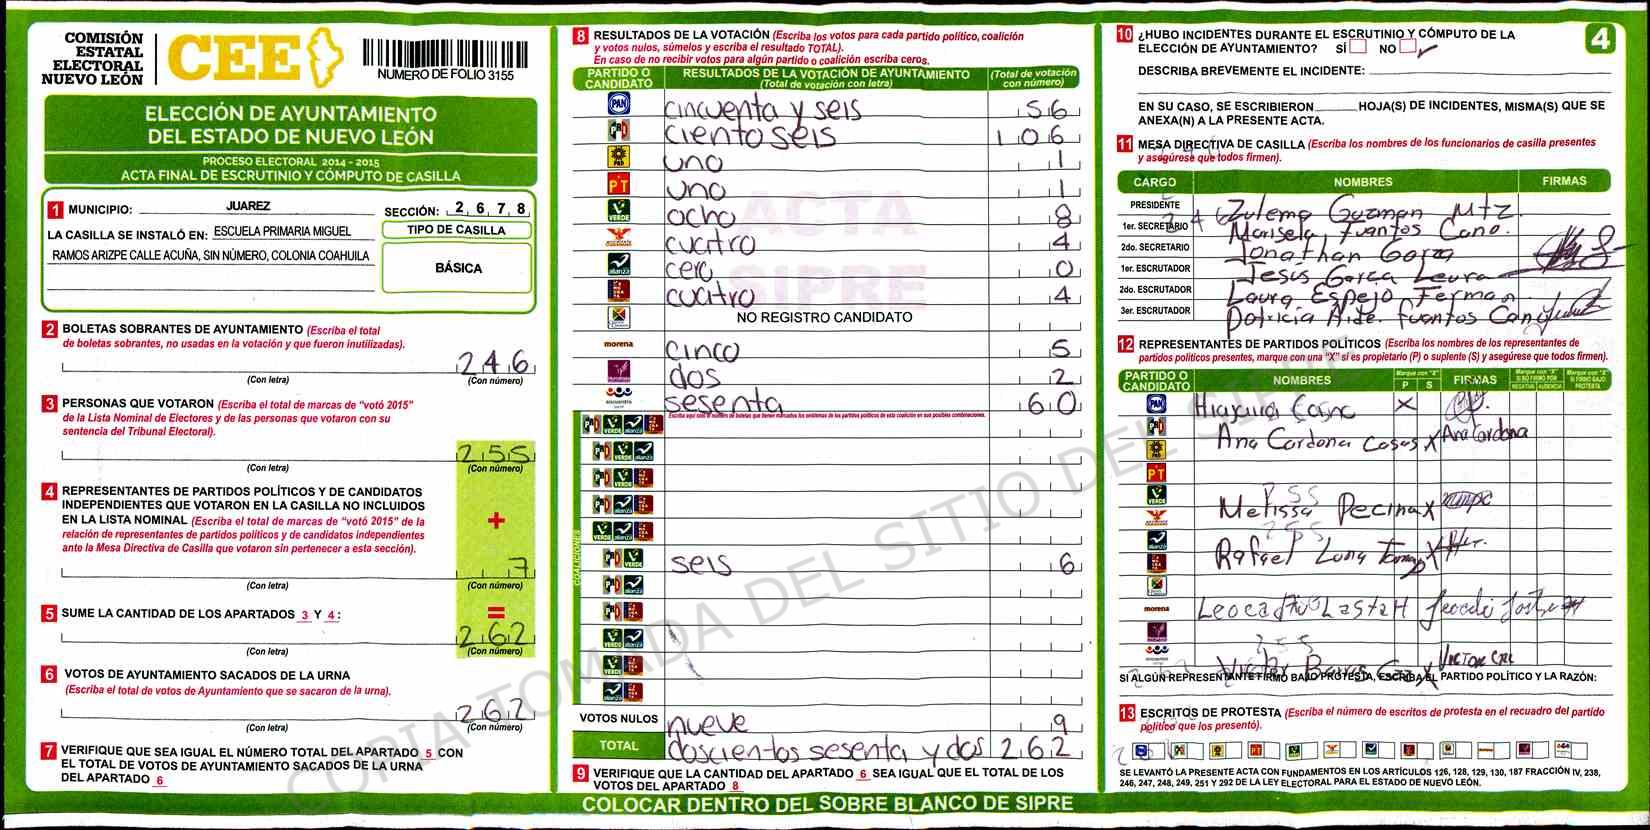 COMISIÓN
ESTATAL
ELECTORAL
NUEVO LEÓN
CEE
NUMERO DE FOLIO 3155
ELECCIÓN DE AYUNTAMIENTO
DEL ESTADO DE NUEVO LEÓN
PROCESO ELECTORAL 2014 - 2015
ACTA FINAL DE ESCRUTINIO Y CÓMPUTO DE CASILLA
1 MUNICIPIO: JUAREZ
SECCIÓN: 2 6 7 8
LA CASILLA SE INSTALÓ EN: ESCUELA PRIMARIA MIGUEL
RAMOS ARIZPE CALLE ACUÑA, SIN NÚMERO, COLONIA COAHUILA
TIPO DE CASILLA
BÁSICA
2 BOLETAS SOBRANTES DE AYUNTAMIENTO (Escriba el total
de boletas sobrantes, no usadas en la votación y que fueron inutilizadas).
246
(Con letra) (Con número)
3 PERSONAS QUE VOTARON (Escriba el total de marcas de “votó 2015”
de la Lista Nominal de Electores y de las personas que votaron con su
sentencia del Tribunal Electoral).
255
(Con letra) (Con número)
4 REPRESENTANTES DE PARTIDOS POLÍTICOS Y DE CANDIDATOS
INDEPENDIENTES QUE VOTARON EN LA CASILLA NO INCLUIDOS
EN LA LISTA NOMINAL (Escriba el total de marcas de “votó 2015” de la
relación de representantes de partidos políticos y de candidatos independientes
ante la Mesa Directiva de Casilla que votaron sin pertenecer a esta sección).
+
7
(Con letra) (Con número)
5 SUME LA CANTIDAD DE LOS APARTADOS 3 Y 4:
=
262
(Con letra) (Con número)
6 VOTOS DE AYUNTAMIENTO SACADOS DE LA URNA
(Escriba el total de votos de Ayuntamiento que se sacaron de la urna).
262
(Con letra) (Con número)
7 VERIFIQUE QUE SEA IGUAL EL NÚMERO TOTAL DEL APARTADO 5 CON
EL TOTAL DE VOTOS DE AYUNTAMIENTO SACADOS DE LA URNA
DEL APARTADO 6
8 RESULTADOS DE LA VOTACIÓN (Escriba los votos para cada partido político, coalición
y votos nulos, súmelos y escriba el resultado TOTAL).
En caso de no recibir votos para algún partido o coalición escriba ceros.
PARTIDO O
CANDIDATO
RESULTADOS DE LA VOTACIÓN DE AYUNTAMIENTO
(Total de votación con letra)
(Total de votación
con número)
PAN cincuenta y seis 56
PRD ciento seis 106
PRD uno 1
PT uno 1
VERDE ocho 8
cuatro 4
alianza cero 0
cuatro 4
NO REGISTRO CANDIDATO
morena cinco 5
dos 2
encuentro sesenta 60
COALICIONES
seis 6
VOTOS NULOS nueve 9
TOTAL doscientos sesenta y dos 262
9 VERIFIQUE QUE LA CANTIDAD DEL APARTADO 6 SEA IGUAL QUE EL TOTAL DE LOS
VOTOS DEL APARTADO 8
ACTA
SIPRE
COPIA TOMADA DEL SITIO DEL SIPRE
COLOCAR DENTRO DEL SOBRE BLANCO DE SIPRE
4
10 ¿HUBO INCIDENTES DURANTE EL ESCRUTINIO Y CÓMPUTO DE LA
ELECCIÓN DE AYUNTAMIENTO? SÍ NO ✓
DESCRIBA BREVEMENTE EL INCIDENTE:
EN SU CASO, SE ESCRIBIERON HOJA(S) DE INCIDENTES, MISMA(S) QUE SE
ANEXA(N) A LA PRESENTE ACTA.
11 MESA DIRECTIVA DE CASILLA (Escriba los nombres de los funcionarios de casilla presentes
y asegúrese que todos firmen).
CARGO NOMBRES FIRMAS
PRESIDENTE Zulema Guzman Mtz.
1er. SECRETARIO Marisela Fuentes Cano.
2do. SECRETARIO Jonathan Garza
1er. ESCRUTADOR Jesus Garca Leura
2do. ESCRUTADOR Laura Espejo Ferman
3er. ESCRUTADOR Patricia Aide. Fuentos Cano
12 REPRESENTANTES DE PARTIDOS POLÍTICOS (Escriba los nombres de los representantes de
partidos políticos presentes, marque con una “X” si es propietario (P) o suplente (S) y asegúrese que todos firmen).
PARTIDO O
CANDIDATO
NOMBRES
Marque con “X”
P S
FIRMAS
PAN X
Ana Cardona Casas X Ana Cardona
Melissa Pecina X
Rafael Luna X
morena
X
SI ALGÚN REPRESENTANTE FIRMÓ BAJO PROTESTA, ESCRIBA EL PARTIDO POLÍTICO Y LA RAZÓN:
13 ESCRITOS DE PROTESTA (Escriba el número de escritos de protesta en el recuadro del partido
político que los presentó).
SE LEVANTÓ LA PRESENTE ACTA CON FUNDAMENTOS EN LOS ARTÍCULOS 126, 128, 129, 130, 187 FRACCIÓN IV, 238,
246, 247, 248, 249, 251 Y 292 DE LA LEY ELECTORAL PARA EL ESTADO DE NUEVO LEÓN.